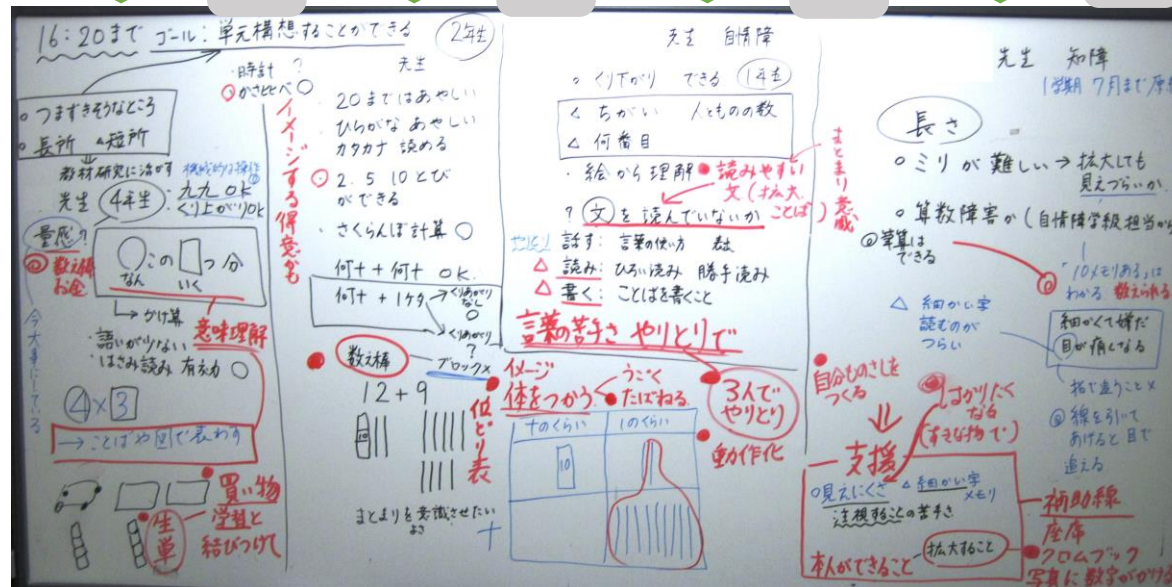 16:20まで ゴール：単元構想することができる
2年生
○つまずきそうなところ
○長所 △短所
教材研究に活かす
先生 4年生
九九 OK
くり上がりOK
量感?
◎数え棒
お金
○この□つ分
なん いく
→かけ算
意味理解
語いが少ない
はさみ読み 有効 ○
今大事にしている
④×3
→ことばや図で表わす
買い物
学習と
結びつけて
生単
・時計 ?
○かさくらべ○
イメージする得意かも
先生
・20まではあやしい
ひらがな あやしい
カタカナ 読める
○2.5 10とび
ができる
・さくらんぼ計算 ○
何十＋何十 OK.
何十＋1ケタ
くりあがり
なし
○
くりあがり
?
数え棒
ブロック×
12+9
10
位どり表
まとまりを意識させたい
よさ
先生 自情障
○くり下がり できる 1年生
△ちがい 人とものの数
△何番目
・絵から理解
●読みやすい
文(拡大、ことば)
まとまり意識
?文を読んでいないか
話す：言葉の使い方
△読み：ひろい読み 勝手読み
△書く：ことばを書くこと
言葉の苦手さ やりとりで
イメージ
体をつかう
うごく
●たばねる
3人で
やりとり
●動作化
十のくらい 1のくらい
10
＋
先生 知障
1学期 7月まで
長さ
○ミリが難しい→拡大しても
見えづらいか
○算数障害か(自情障学級担当から
◎筆算は
できる
「10メモリある」は
わかる 数えられる
△細かい字
読むのが
つらい
細かくて嫌だ
目が痛くなる
指で追うこと×
◎線を引いて
あげると目で
追える
●自分ものさしを
つくる
●はかりたく
なる
(すきな物で)
支援
○見えにくさ △細かい字
メモリ
注視することの苦手さ
本人ができること
拡大すること
補助線
座席
●クロムブック
写真に数字がかける